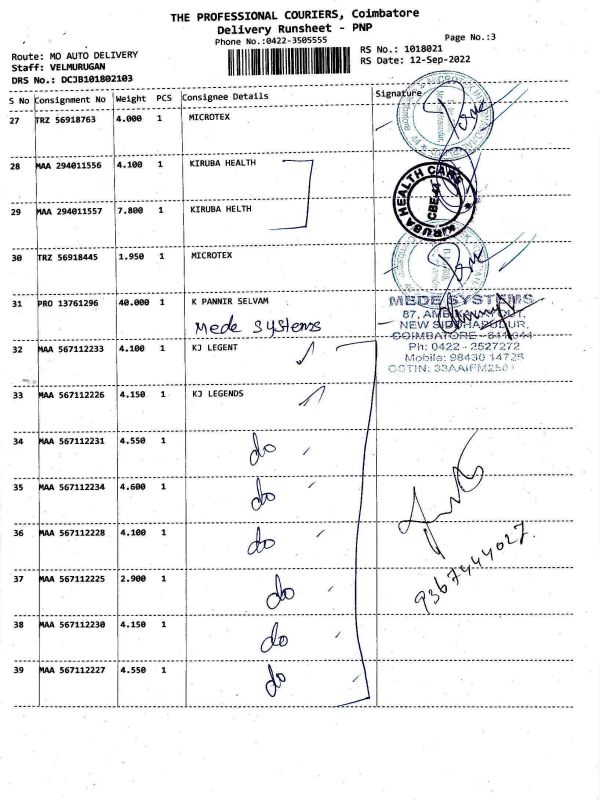 THE PROFESSIONAL COURIERS, Coimbatore
Delivery Runsheet - PNP
Phone No.:0422-3505555
Page No.:3
Route: MO AUTO DELIVERY
RS No.: 1018021
Staff: VELMURUGAN
RS Date: 12-Sep-2022
DRS No.: DCJB101802103
S No Consignment No Weight PCS Consignee Details Signature
27 TRZ 56918763 4.000 1 MICROTEX
28 MAA 294011556 4.100 1 KIRUBA HEALTH
KIRUBA HEALTH CARE
CBE-44
29 MAA 294011557 7.800 1 KIRUBA HELTH
30 TRZ 56918445 1.950 1 MICROTEX
31 PRO 13761296 40.000 1 K PANNIR SELVAM
Mede Systems
MEDE SYSTEMS
87,
NEW SIDDHAPUDUR,
COIMBATORE - 641 044
Ph: 0422 - 2527272
Mobile: 98430 14725
GSTIN: 33AAIFM250
32 MAA 567112233 4.100 1 KJ LEGENT
33 MAA 567112226 4.150 1 KJ LEGENDS
34 MAA 567112231 4.550 1 do
35 MAA 567112234 4.600 1 do
36 MAA 567112228 4.100 1 do
9367444027.
37 MAA 567112225 2.900 1 do
38 MAA 567112230 4.150 1 do
39 MAA 567112227 4.550 1 do